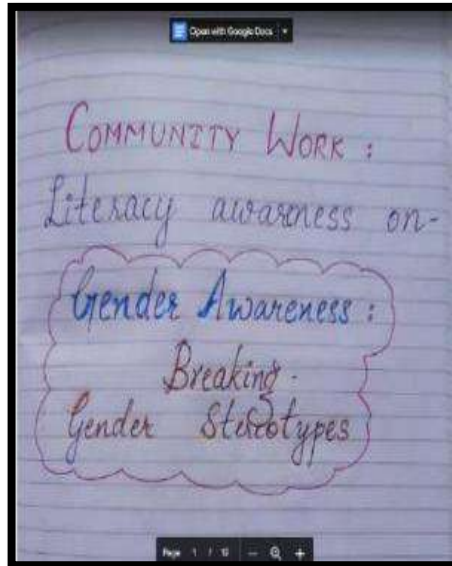 Open with Google Docs
COMMUNITY WORK :
Literacy awareness on-
Gender Awareness :
Breaking -
Gender Stereotypes
Page 1 /